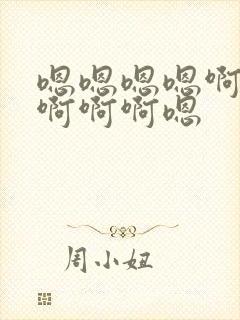 嗯嗯嗯嗯啊
啊啊啊嗯
周小妞